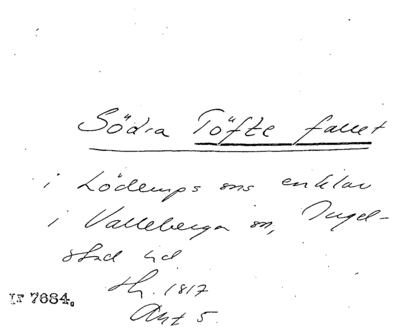 Södra Töfte fallet
i Löderups sns enklav
i Valleberga sn, Ingel-
stad hd
Sh. 1817
Akt 5.
LF 7684.